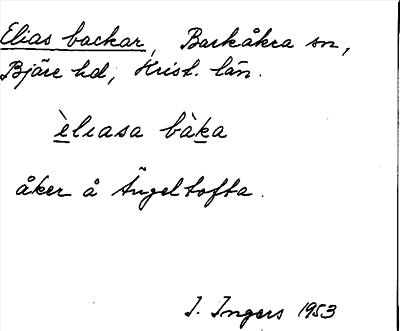 Elias backar, Barkåkra sn,
Bjäre hd, Krist. län.
èlıasa bàka
åker å Ängeltofta.
I. Ingers 1953